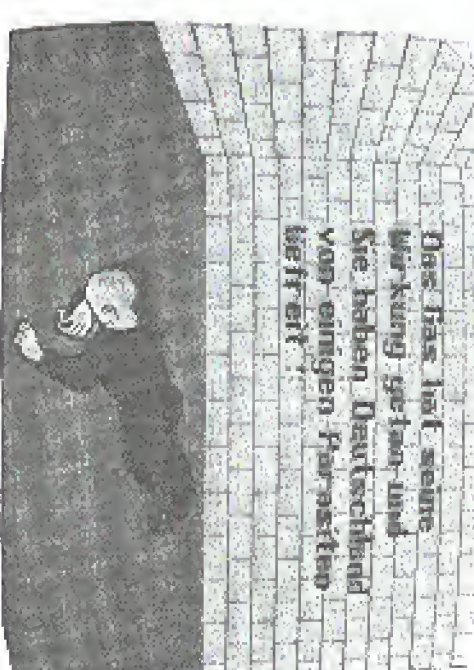 Das Gas hat seine
Wirkung getan und
Sie haben Deutschland
von einigen Parasiten
befreit !